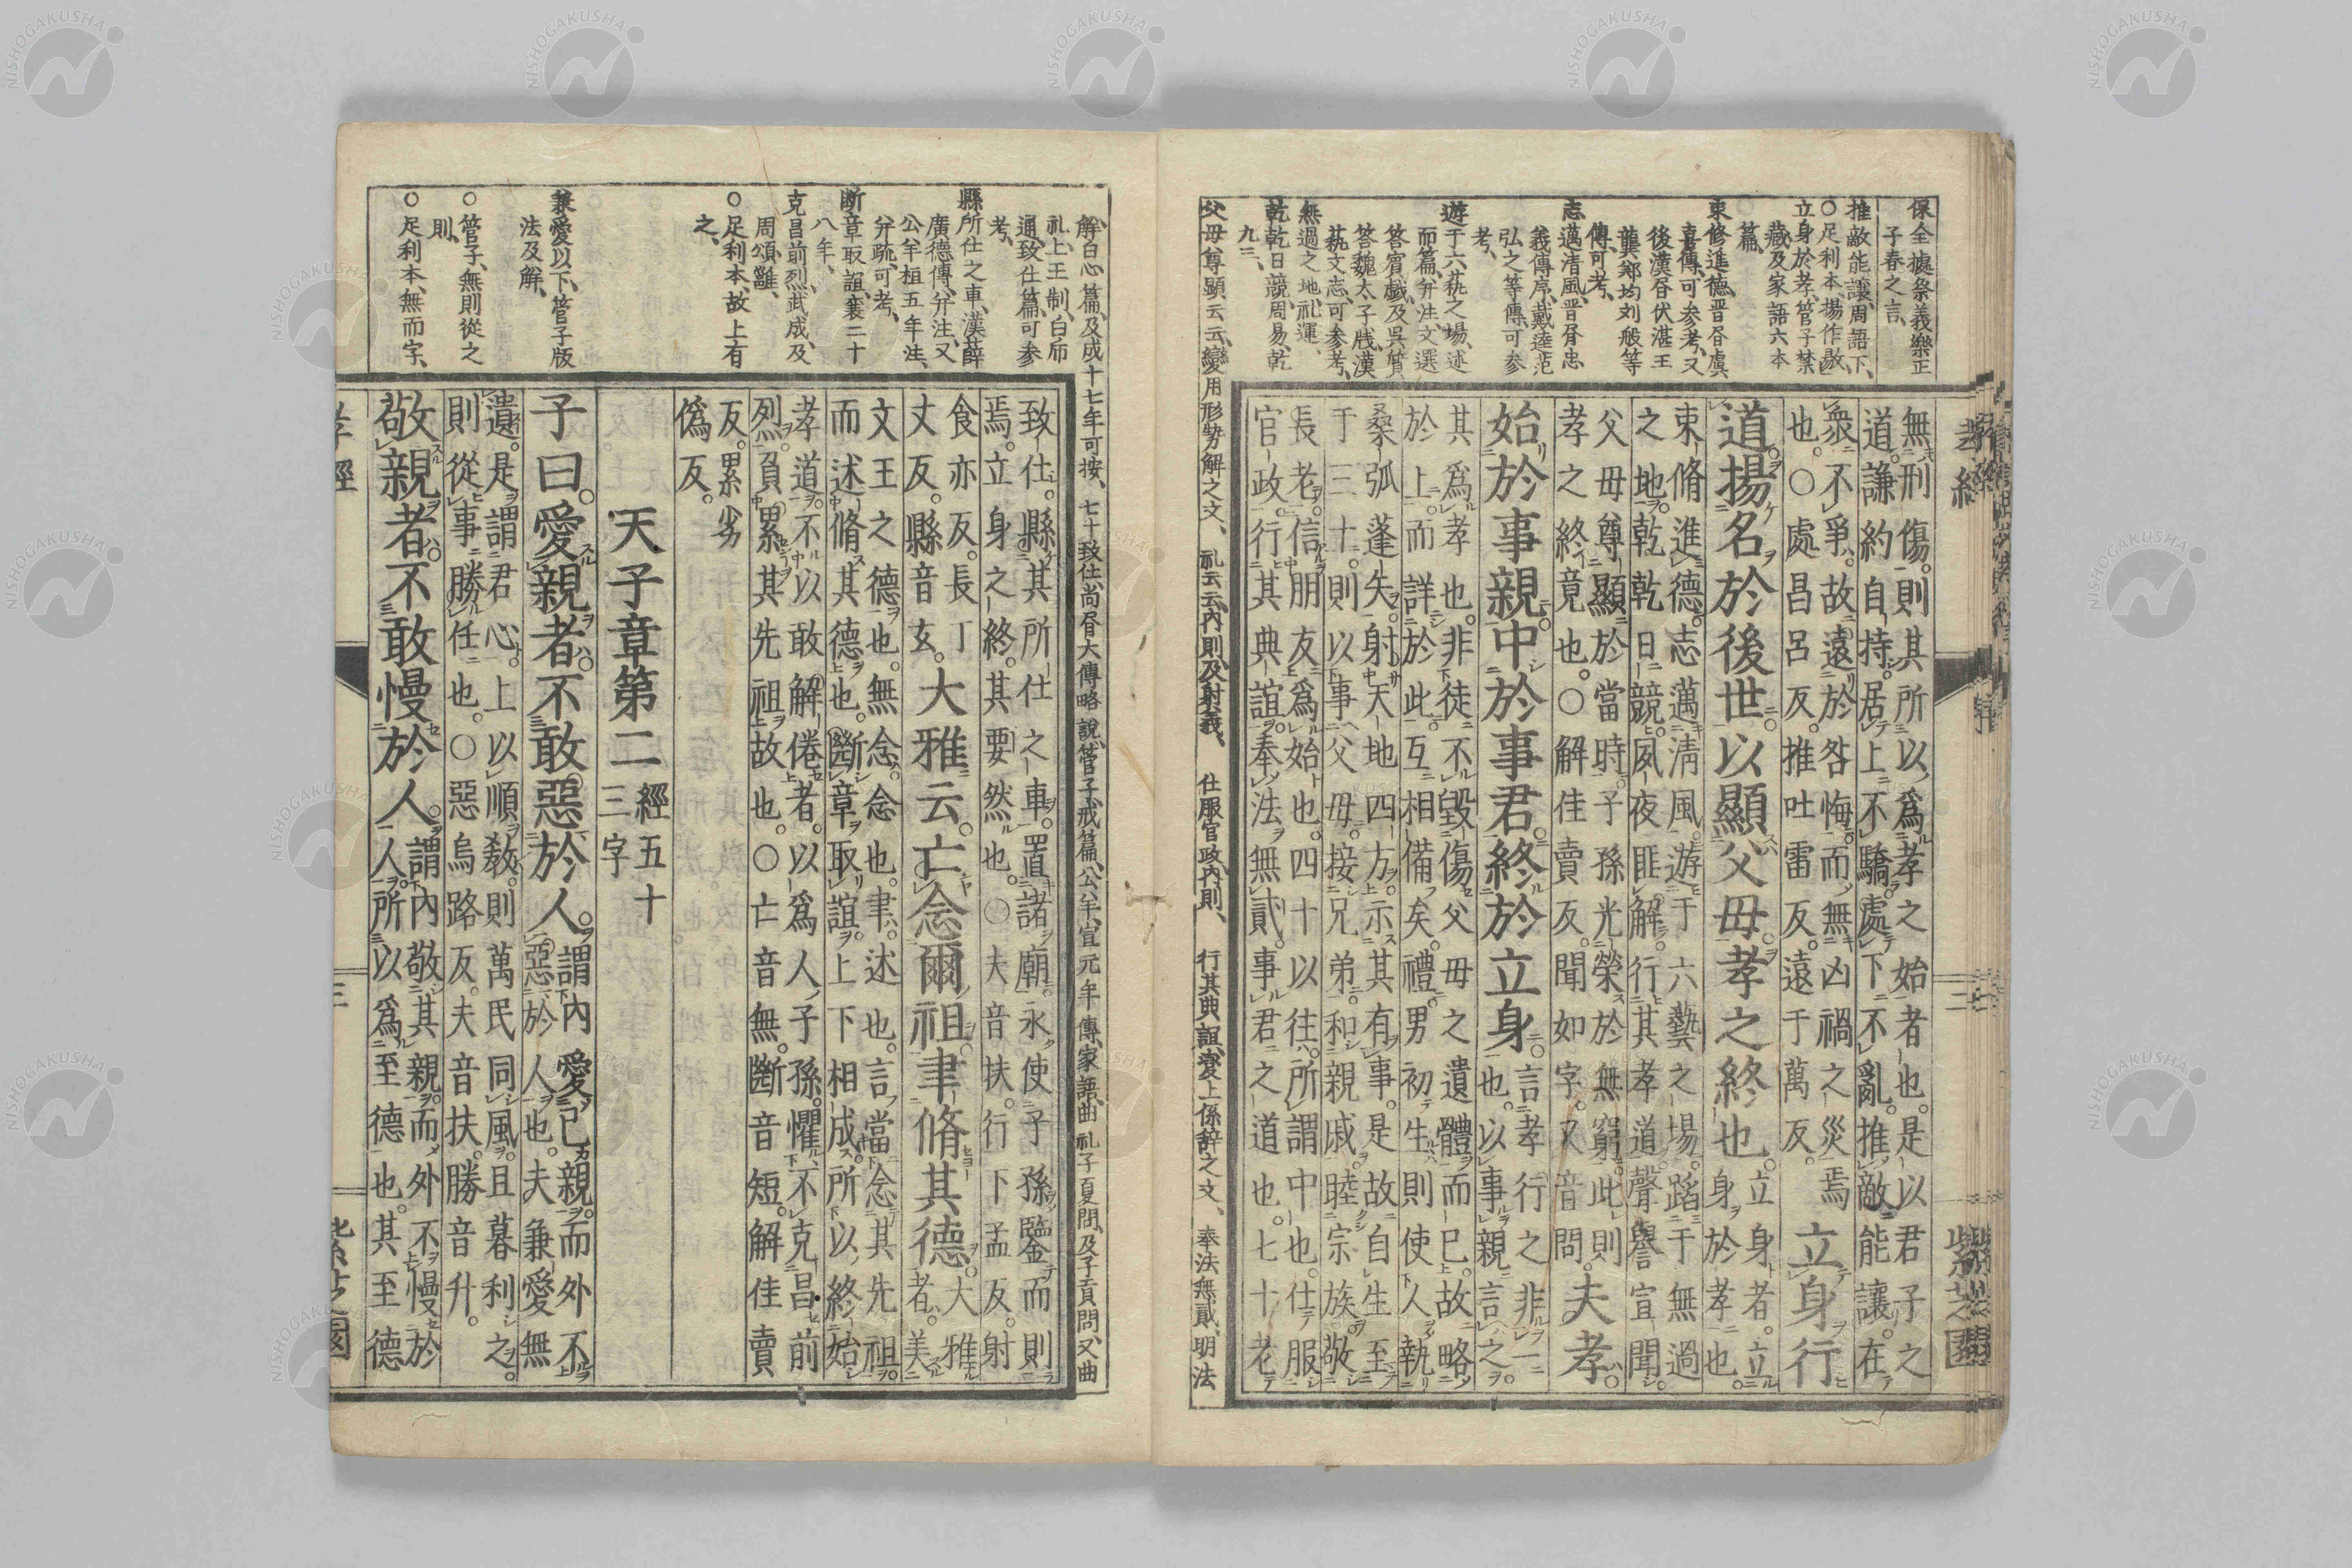 保全據祭義樂正
子春之言、
推敵能讓、周語下、
○足利本、揚作敭、
立身於孝、管子禁
藏及家語六本
篇、
束修進德、晋書虞
喜傳、可参考、又
後漢書伏湛王
龔鄭均刘般等
傳、可考、
志邁清風、晋書忠
義傳序、戴逵范
弘之等傳、可参
考、
遊于六蓺之場、述
而篇、并注、文選
答賓戲、及吳質
答魏太子牋、漢
蓺文志、可参考、
無過之地、礼運、
乾乾日競、周易、乾
九三、
父母尊顯云云、變用形勢解之文、 礼云云、內則、及射義、 仕服官政、內則、 行其典誼、變上係辞之文、 奉法無貳、明法
孝經 二 紫芝園
無刑傷。則其所以爲孝之始者也。是以君子之
道。謙約自持。居上不驕。處下不亂。推敵能讓。在
衆不爭。故遠於咎悔。而無凶禍之災焉
也。○處昌呂反。推吐雷反。遠于萬反。
立身行
道。揚名於後世。以顯父母。孝之終也。
立身者。立
身於孝也。
束脩進德。志邁淸風。遊于六藝之場。蹈于無過
之地。乾乾日競。夙夜匪解。行其孝道。聲譽宣聞。
父母尊顯於當時。子孫光榮於無窮。此則
孝之終竟也。○解佳賣反。聞如字。又音問。
夫孝。
始於事親。中於事君。終於立身。
言孝行之非一
也。以事親言之。
其爲孝也。非徒不毀傷父母之遺體而已。故略
於上。而詳於此。互相備矣。禮。男初生。則使人執
桑弧蓬矢。射天地四方。示其有事。是故自生至
于三十。則以事父母。接兄弟。和親戚。睦宗族。敬
長老。信朋友爲始也。四十以往。所謂中也。仕服
官政。行其典誼。奉法無貳。事君之道也。七十老
解、白心篇、及成十七年可按、 七十致仕、尚書大傳略說、管子戒篇、公羊、宣元年傳、家語、曲礼子夏問、及子貢問、又曲
礼上、王制、白帍
通、致仕篇、可参
考、
縣所仕之車、漢薛
廣德傳、并注、又
公羊桓五年注、
并疏、可考、
断章取誼、襄二十
八年、
克昌前烈、武成、及
周頌、雝、
○足利本、故上有
之、
兼愛以下、管子版
法及解、
○管子、無則從之
則、
○足利本、無而字、
致仕。縣其所仕之車。置諸廟。永使子孫鑒而則
焉。立身之終。其要然也。○夫音扶。行下孟反。射
食亦反。長丁
丈反。縣音玄。
大雅云。亡念爾祖。聿脩其德。
大雅
者。美
文王之德也。無念。念也。聿。述也。言當念其先祖。
而述脩其德也。斷章取誼。上下相成。所以終始
孝道。不以敢解倦者。以爲人子孫。懼不克昌前
烈。負累其先祖故也。○亡音無。斷音短。解佳賣
反。累劣
僞反。
天子章第二
經五十
三字
子曰。愛親者。不敢惡於人。
謂內愛己親。而外不
惡於人也。夫兼愛無
遺。是謂君心。上以順敎。則萬民同風。且暮利之。
則從事勝任也。○惡烏路反。夫音扶。勝音升。
敬親者。不敢慢於人。
謂內敬其親。而外不慢於
人。所以爲至德也。其至德
孝經 三 紫芝園